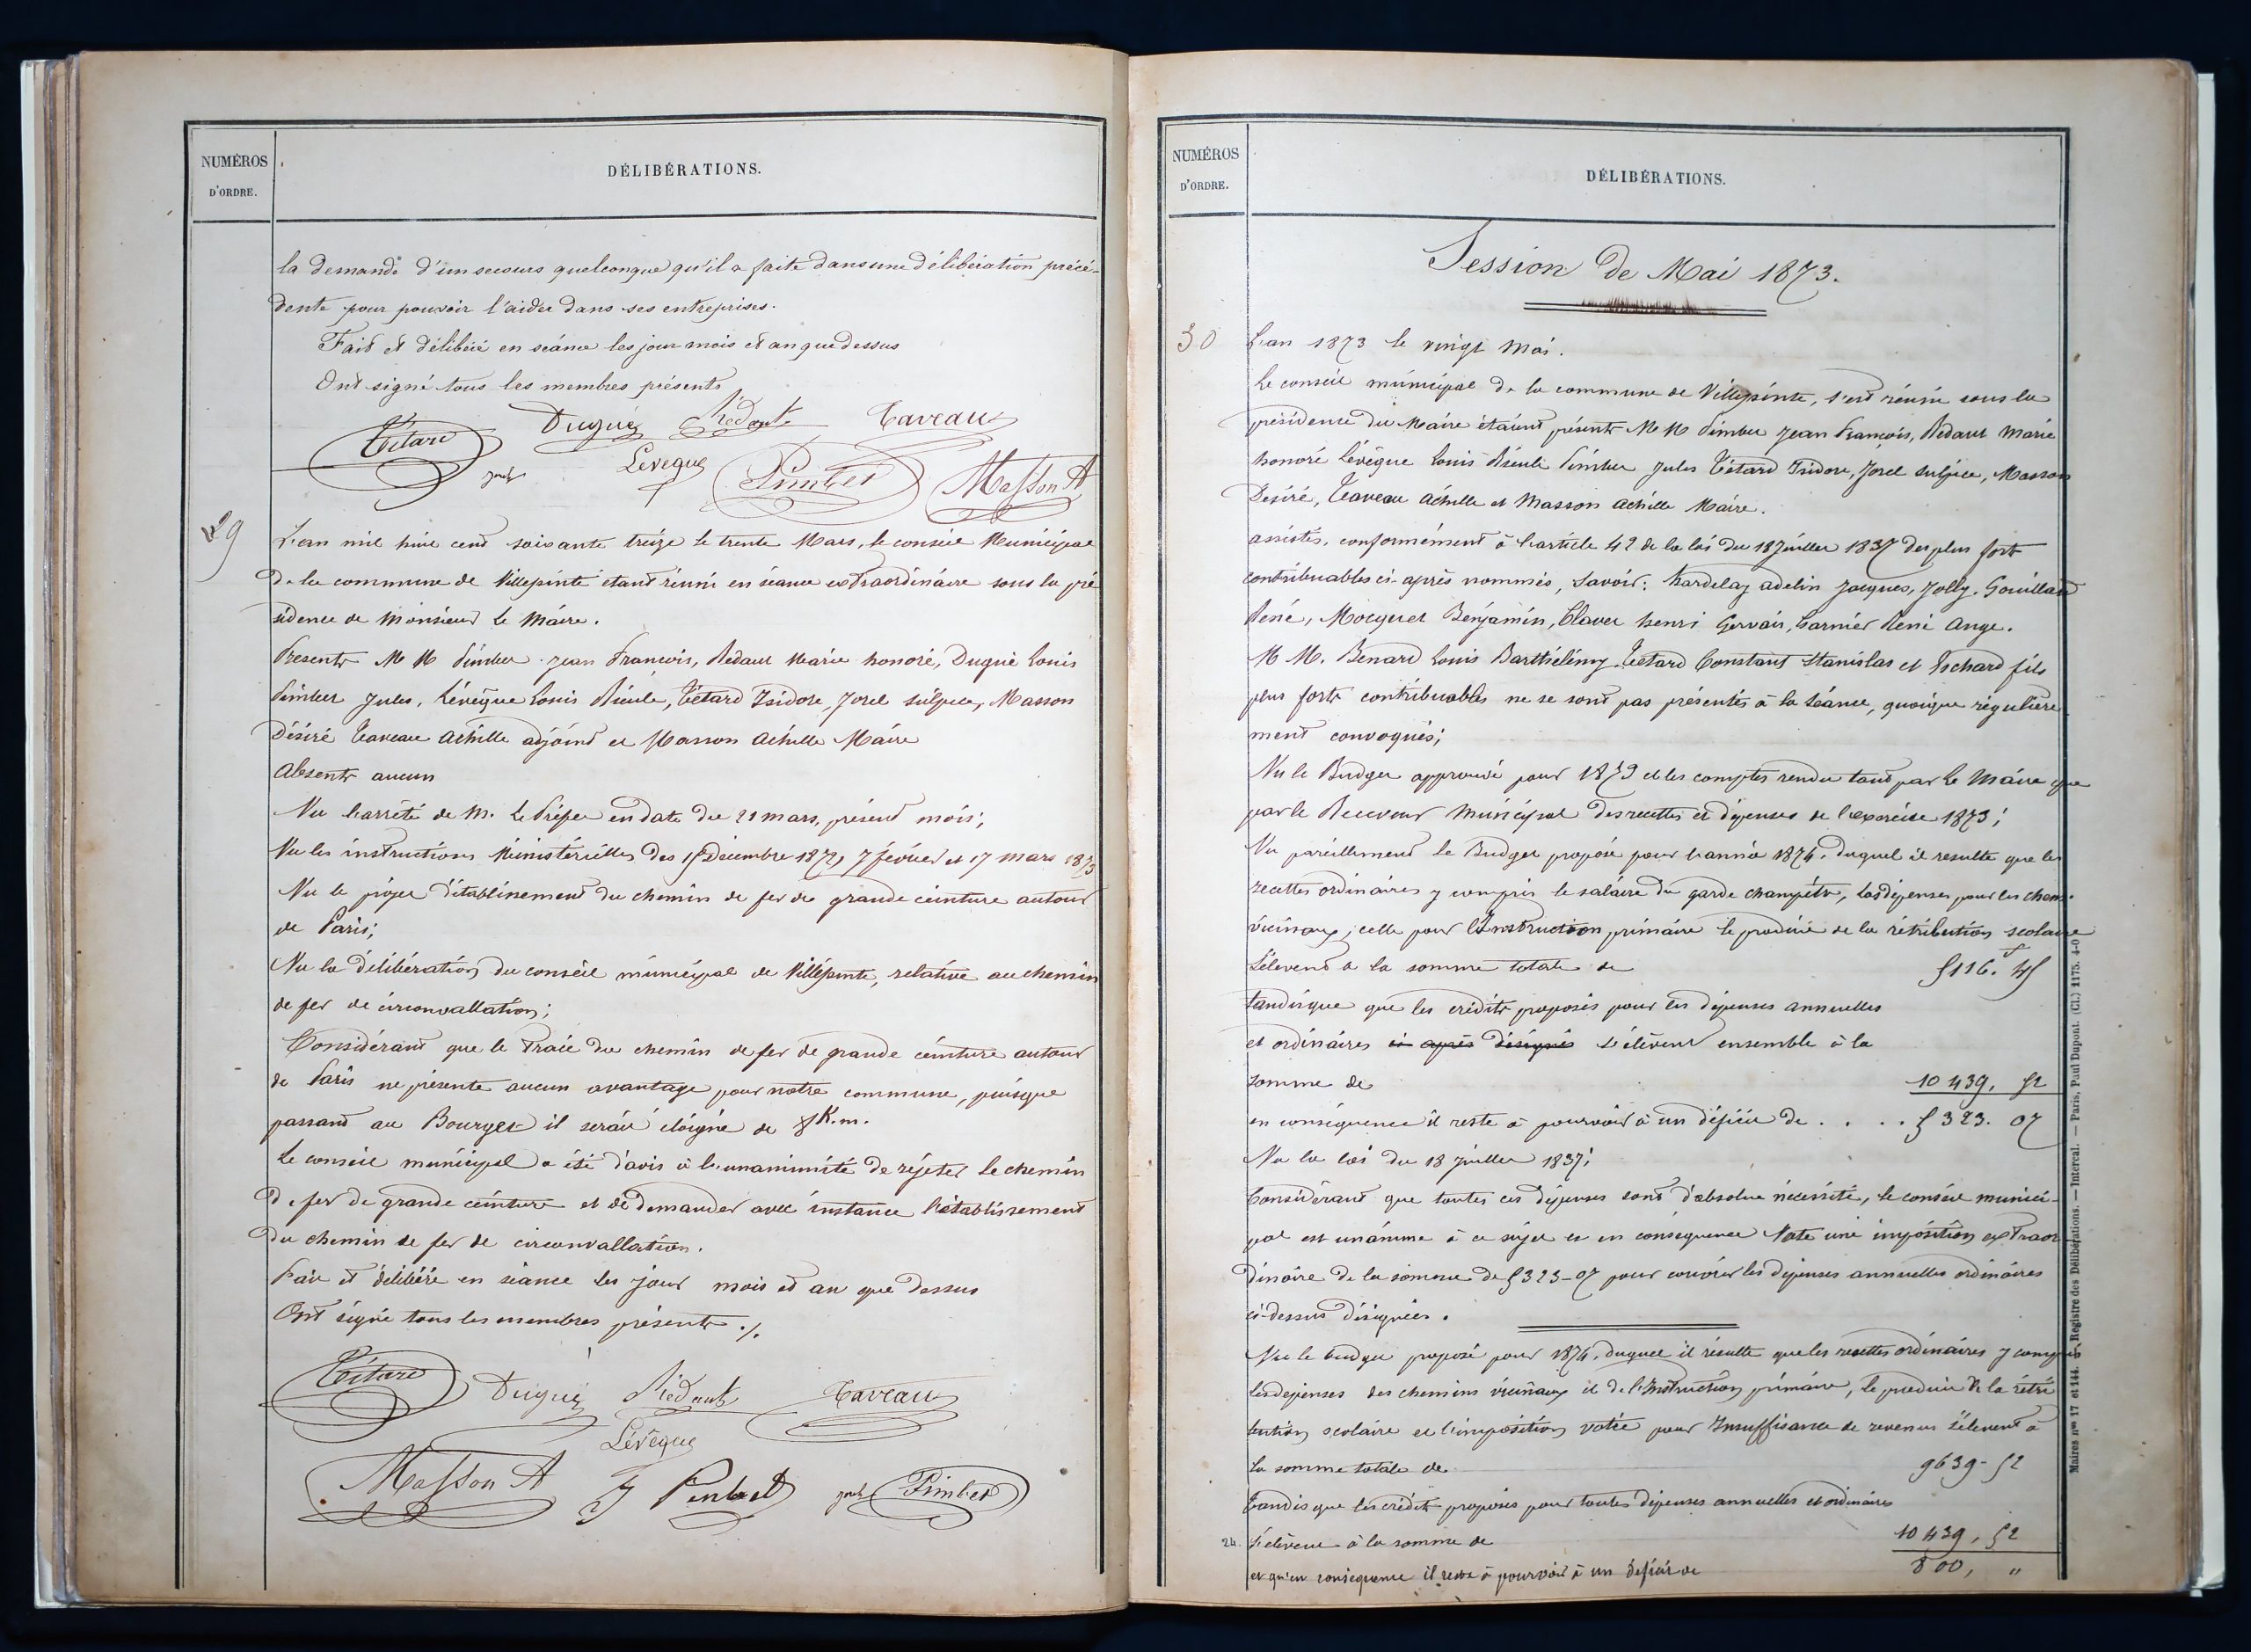 NUMÉROS
D'ORDRE.
DÉLIBÉRATIONS.
la demande d'un secours quelconque qu'il a faite dans une délibération précé-
dente pour pouvoir l'aider dans ses entreprises.
Fait et délibéré en séance les jour mois et an que dessus
Ont signé tous les membres présents
Tétard Dugué Redaut Taveau
Leveque Pimber Masson A
29
L'an mil huit cent soixante treize le trente Mars, le conseil Municipal
de la commune de Villepinte étant réuni en séance extraordinaire sous la pré
sidence de Monsieur le Maire.
Présents M M Pimber Jean François, Redaut Marie honoré, Dugué Louis
Pimber Jules, Lévêque Louis Rieule, Tétard Isidore, Jorel sulpice, Masson
Désiré Taveau Achille adjoint et Masson Achille Maire
Absents aucun
Vu l'arrêté de M. le Préfet en date du 21 mars, présent mois;
Vu les instructions Ministérielles des Décembre 1872, 7 février et 17 mars 1873
Vu le projet d'établissement du chemin de fer de grande ceinture autour
de Paris;
Vu la délibération du conseil municipal de Villepinte, relative au chemin
de fer de circonvallation;
Considérant que le tracé du chemin de fer de grande ceinture autour
de Paris ne présente aucun avantage pour notre commune, puisque
passant au Bourget il serait éloigné de 8 K.m.
Le conseil municipal a été d'avis à l'unanimité de rejeter le chemin
de fer de grande ceinture et de demander avec instance l'établissement
du chemin de fer de circonvallation.
Fait et délibéré en séance les jour mois et an que dessus
Ont signé tous les membres présents ./.
Tétard Dugué Redaut Taveau
Lévêque
Masson A Pimber Pimber
NUMÉROS
D'ORDRE.
DÉLIBÉRATIONS.
Session de Mai 1873.
30
L'an 1873 le vingt Mai.
Le conseil municipal de la commune de Villepinte, s'est réuni sous la
présidence du Maire étaient présents M M Pimber Jean François, Redaut Marie
honoré Lévêque Louis Rieule Pimber Jules Tétard Isidore, Jorel sulpice, Masson
Desiré, Taveau Achille et Masson Achille Maire.
assistés, conformément à l'article 42 de la loi du 18 Juillet 1837 des plus fort
contribuables ci-après nommés, savoir: hardelay adelin Jacques, Jolly, Gouillard
René, Mocquet Benjamin, Claver henri Gervais, Garnier René Ange.
M M. Benard Louis Barthélémy Tétard Constant Stanislas et Eschard fils
plus forts contribuables ne se sont pas présentés à la séance, quoique régulière
ment convoqués;
Vu le Budget approuvé pour 1873 et les comptes rendu tant par le Maire que
par le Receveur Municipal des recettes et dépenses de l'exercice 1873;
Vu pareillement le Budget proposé pour l'année 1874, duquel il resulte que les
recettes ordinaires y compris le salaire du garde champêtre, les dépenses pour les chem.
vicinaux, celle pour l'Instruction primaire le produit de la rétribution scolaire
s'élevent à la somme totale de 5116. 45
tandisque que les crédits proposés pour les dépenses annuelles
et ordinaires ci après désignés s'élèvent ensemble à la
somme de 10 439, 52
en conséquence il reste à pourvoir à un déficit de . . . . 5 323. 07
Vu la loi du 18 Juillet 1837;
Considérant que toutes ces dépenses sont d'absolue nécessité, le conseil munici-
pal est unanime à ce sujet et en conséquence Vote une imposition extraor
dinaire de la somme de 5323-07 pour couvrir les dépenses annuelles ordinaires
ci-dessus désignées.
Vu le budget proposé pour 1874, duquel il résulte que les recettes ordinaires y compris
les dépenses des chemins vicinaux et de l'Instruction primaire, le produit de la rétri
bution scolaire et l'imposition votée pour Insuffisance de revenus s'élevent à
la somme totale de 9639-52
Tandis que les crédits proposés pour toutes dépenses annuelles et ordinaires
24. s'élèvent à la somme de 10 439, 52
et qu'en conséquence il reste à pourvoir à un déficit de 800, "
Maires nos 17 et 144. Registre des Délibérations. — Intercal. — Paris, Paul Dupont. (Cl.) 1175. 4-0